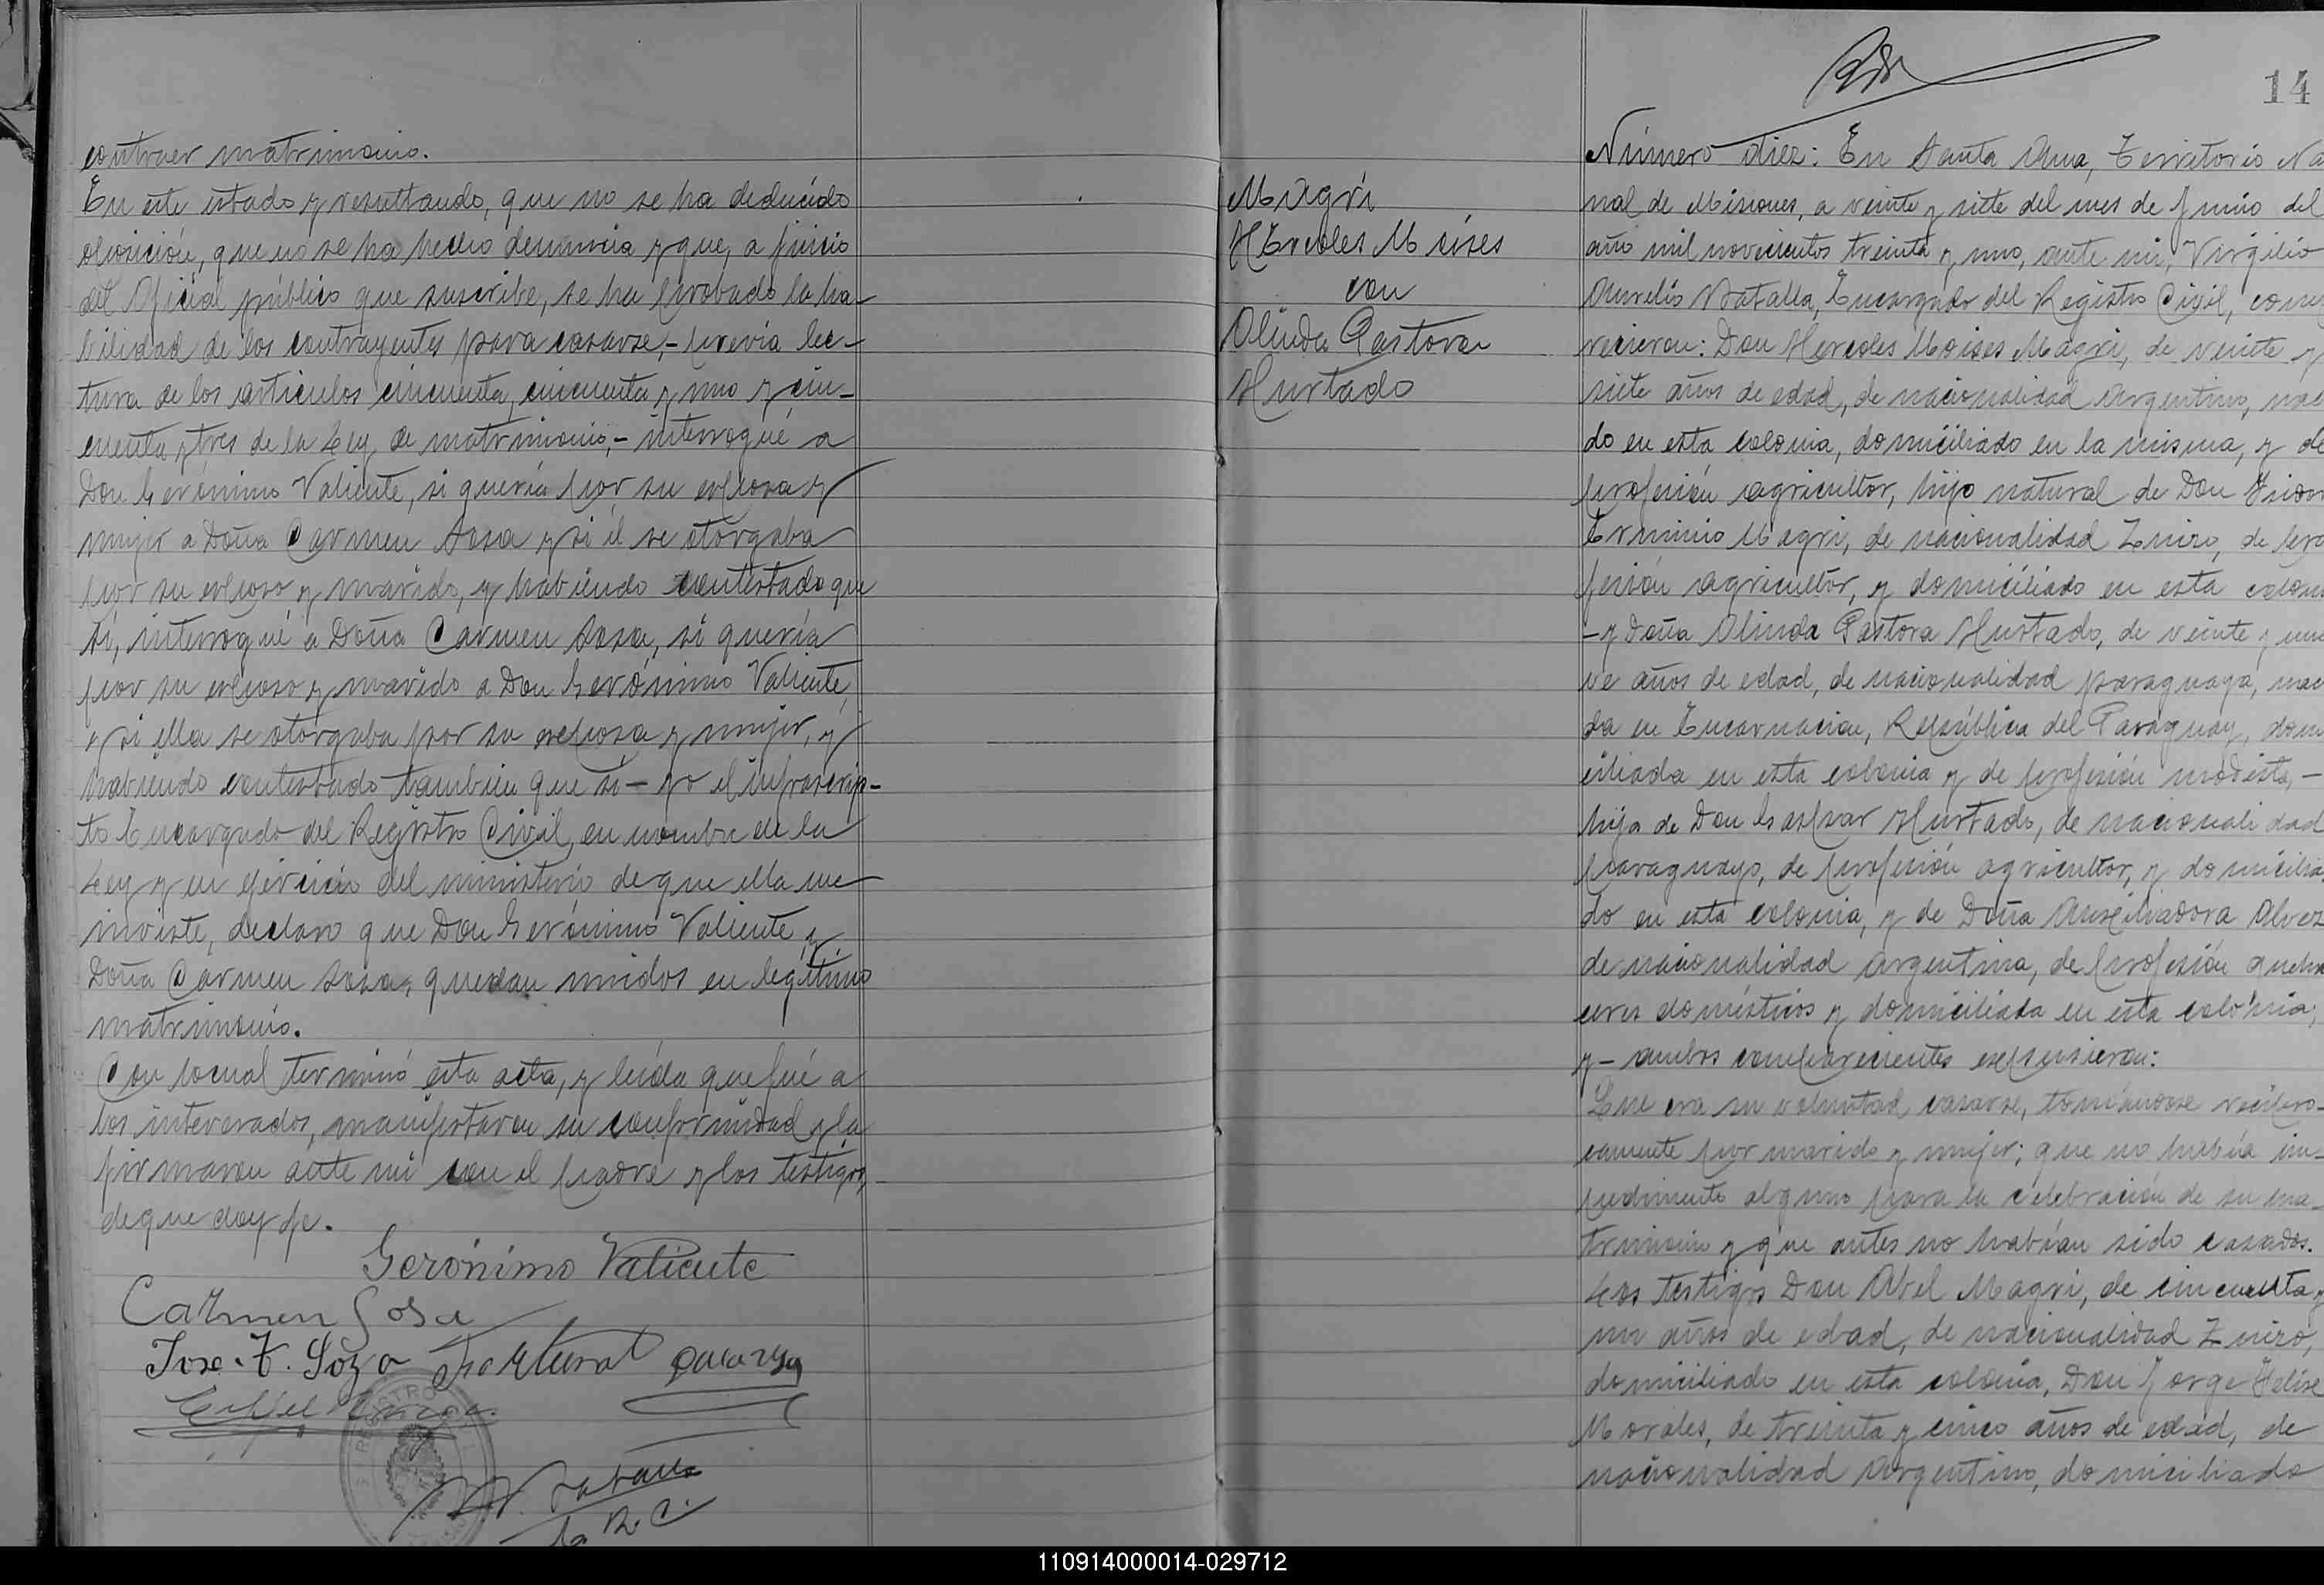 contraer matrimonio.
En este estado y resultando, que no se ha deducido
oposición, que no se ha hecho denuncia y que, a juicio
del Oficial público que suscribe, se ha probado la ha-
bilidad de los contrayentes para casarse,- previa lec-
tura de los artículos cincuenta, cincuenta y uno y cin-
cuenta y tres de la Ley de matrimonio,- interrogué a
Don Gerónimo Valiente, si quería por su esposa y
mujer a Doña Carmen Sosa y si él se otorgaba
por su esposo y marido, y habiendo contestado que
si, interrogué a Doña Carmen Sosa, si quería
por su esposo y marido a Don Gerónimo Valiente,
y si ella se otorgaba por su esposa y mujer, y
habiendo contestado tambien que si- yo el infrascrip-
to Encargado del Registro Civil, en nombre de la
Ley y en ejercicio del ministerio de que ella me
inviste, declaro que Don Gerónimo Valiente y
Doña Carmen Sosa, quedan unidos en legítimo
matrimonio.
Con lo cual terminó esta acta, y leída que fué a
los interesados, manifestaron su conformidad y la
firmaron ante mi con el padre y los testigos,
de que doy fe.
Gerónimo Valiente
Carmen Sosa
Jose. T. Soza
REGISTRO
14
Magri
Hercoles Moises
con
Olinda Pastora
Hurtado
Número diez: En Santa Ana, Territorio Na
nal de Misiones, a veinte y siete del mes de Junio del
año mil novecientos treinta y uno, ante mi, Virgilio
Aurelio Batalla, Encargado del Registro Civil, com
recieron: Don Hercoles Moises Magri, de veinte y
siete años de edad, de nacionalidad Argentino, naci
do en esta colonia, domiciliado en la misma, y de
profesión agricultor, hijo natural de Don
Erminio Magri, de nacionalidad Zuizo, de pro
fesión agricultor, y domiciliado en esta colon
-y Doña Olinda Pastora Hurtado, de veinte y nue
ve años de edad, de nacionalidad paraguaya, naci
da en Encarnacion, República del Paraguay, domi
ciliada en esta colonia y de profesión modista,-
hija de Don Gaspar Hurtado, de nacionalidad
paraguayo, de profesión agricultor, y domicilia
do en esta colonia, y de Doña Auxciliadora Alvez
de nacionalidad Argentina, de profesión queha
ceres domésticos y domiciliada en esta colonia,
y- ambos comparecientes expusieron:
Que era su voluntad casarse, tomándose recipro-
camente por marido y mujer; que no había im-
pedimento alguno para la celebración de su ma-
trimonio y que antes no habían sido casados.
Los testigos Don Abel Magri, de cincuenta y
un años de edad, de nacionalidad Zuizo,
domiciliado en esta colonia, Don Jorge Felise
Morales, de treinta y cinco años de edad, de
nacionalidad Argentino, domiciliado
110914000014-029712